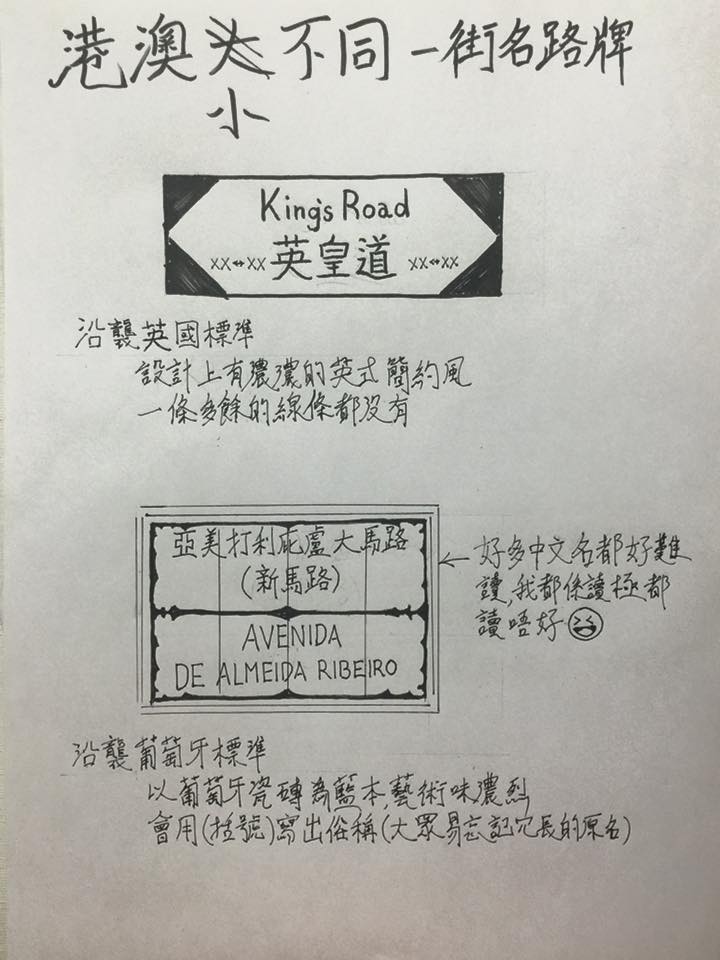 港澳大不同－街名路牌
小
King's Road
XX↔XX 英皇道 XX↔XX
沿襲英國標準
設計上有濃濃的英式簡約風
一條多餘的線條都没有
亞美打利庇盧大馬路
(新馬路)
AVENIDA
DE ALMEIDA RIBEIRO
←好多中文名都好難
讀,我都係讀極都
讀唔好
沿襲葡萄牙標準
以葡萄牙瓷磚為藍本,藝術味濃烈
會用(括號)寫出俗稱(大眾易忘記冗長的原名)